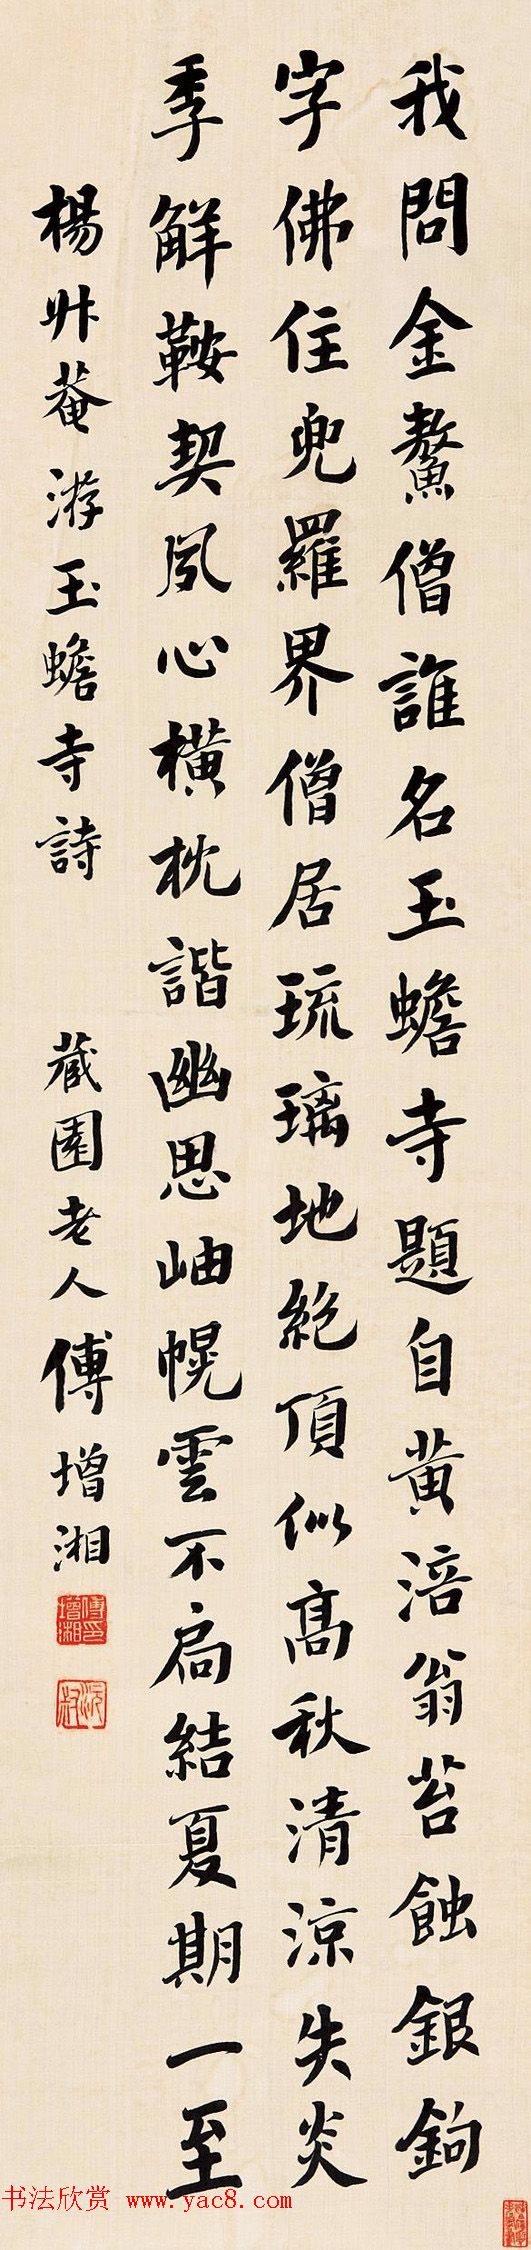 我問金鰲僧誰名玉蟾寺題自黃涪翁苔蝕銀鉤
字佛住兜羅界僧居琉璃地絕頂似高秋清涼失炎
季解鞍契夙心橫枕諧幽思岫幌雲不扃結夏期一至
楊升菴游玉蟾寺詩 藏園老人傅增湘
傅印增湘
沅叔
书法欣赏 www.yac8.com